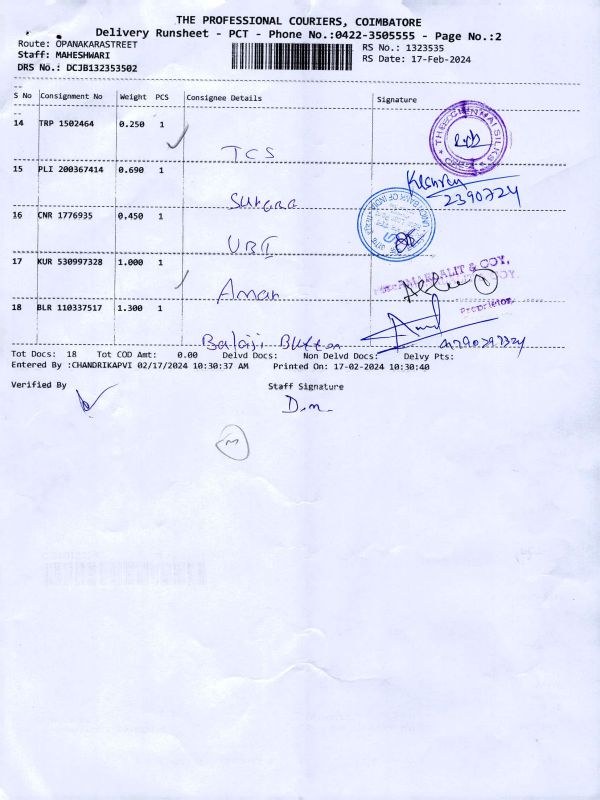 THE PROFESSIONAL COURIERS, COIMBATORE
Delivery Runsheet - PCT - Phone No.:0422-3505555 - Page No.:2
Route: OPANAKARASTREET
RS No.: 1323535
Staff: MAHESHWARI
RS Date: 17-Feb-2024
DRS No.: DCJB132353502
S No Consignment No Weight PCS Consignee Details Signature
14 TRP 1502464 0.250 1
TCS
THE CHENNAI SILKS
15 PLI 200367414 0.690 1
Sukara
2390724
16 CNR 1776935 0.450 1
UBI
UNION BANK OF INDIA
17 KUR 530997328 1.000 1
Aman
AMARLALIT & COY,
Proprietor
18 BLR 110337517 1.300 1
Balaji Button
Tot Docs: 18 Tot COD Amt: 0.00 Delvd Docs: Non Delvd Docs: Delvy Pts:
Entered By :CHANDRIKAPVI 02/17/2024 10:30:37 AM Printed On: 17-02-2024 10:30:40
Verified By Staff Signature
D.m.
M